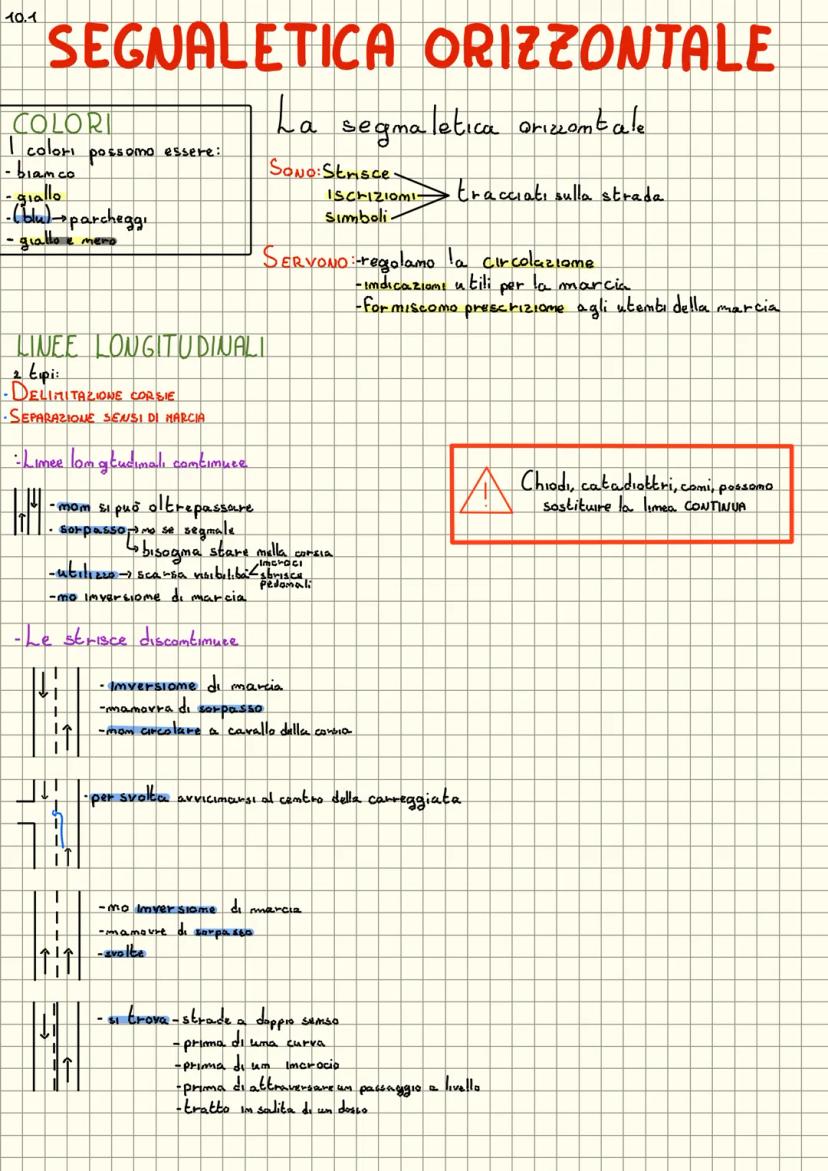 10.1
SEGNALETICA ORIZZONTALE
COLORI
I colori possono essere:
- bianco
- giallo
- (blu) → parcheggi
- giallo e nero
La segnaletica orizzontale
SONO: Strisce
Iscrizioni
simboli
tracciati sulla strada
SERVONO: - regolano la circolazione
- indicazioni utili per la marcia
- forniscono prescrizione agli utenti della marcia
LINEE LONGITUDINALI
2 tipi:
· DELIMITAZIONE CORSIE
· SEPARAZIONE SENSI DI MARCIA
· Linee longitudinali continuee
- non si può oltrepassare
· sorpasso → no se segnale
↳ bisogna stare nella corsia
- utilizzo → scarsa visibilità < incroci
strisce
pedonali
- no inversione di marcia
Chiodi, catadiottri, coni, possono
sostituire la linea CONTINUA
- Le strisce discontinuee
- inversione di marcia
- manovra di sorpasso
- non circolare a cavallo della corsia
- per svolta avvicinarsi al centro della carreggiata
- no inversione di marcia
- manovre di sorpasso
- svolte
- si trova - strade a doppio senso
- prima di una curva
- prima di un incrocio
- prima di attraversare un passaggio a livello
- tratto in salita di un dosso